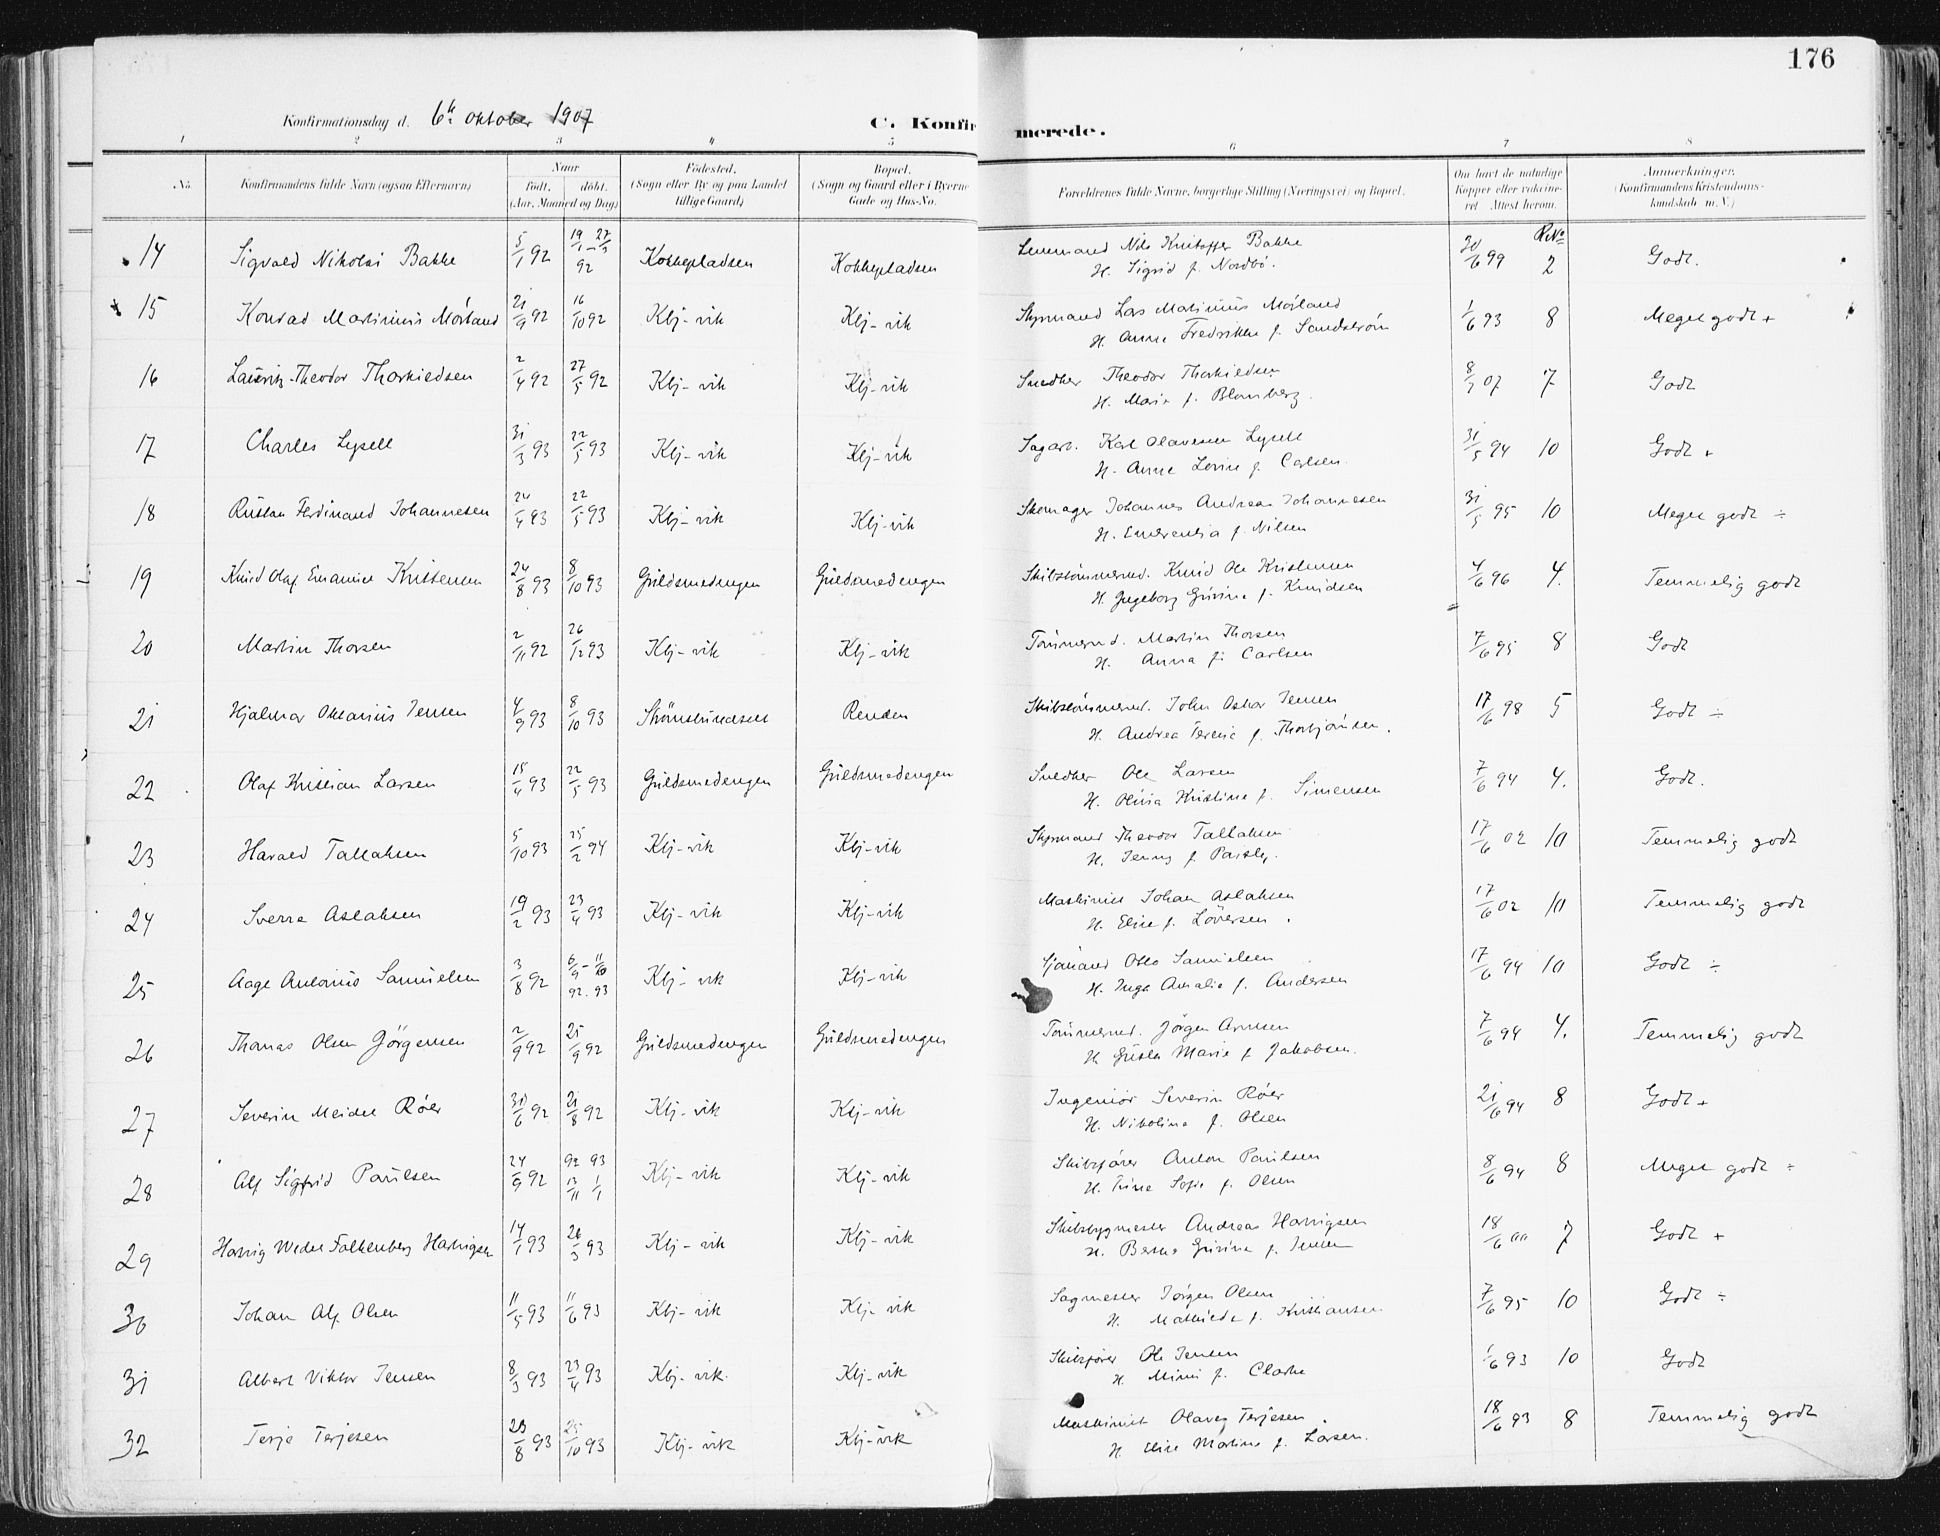 176
Konfirmationsdag d. 6te oktober 1907
C. Konfirmerede.
1 2 3 4 5 6 7 8
No. Konfirmandens fulde Navn (ogsaa Efternavn) Naar født. døbt. (Aar, Maaned og Dag) Fødested. (Sogn eller By og paa Landet tillige Gaard) Bopæl. (Sogn og Gaard eller i Byerne Gade og Hus-No. Forældrenes fulde Navne, borgerlige Stilling (Næringsvei) og Bopæl. Om havt de naturlige Kopper eller vakcineret. Attest herom. Anmærkninger. (Konfirmandens Kristendomskundskab m. V.)
14 Sigvald Nikolai Bakke 5/1 92 19/1 - 27/3 92 Kokkepladsen Kokkepladsen Lensmand Nils Kristoffer Bakke 30/6 99 R.No 2 Godt.
H. Sigrid f. Nordbö.
15 Konrad Martinius Mörland 21/9 92 16/10 92 Kbj-vik Kbj-vik Styrmand Lars Matinius Mörland 1/6 93 8 Meget godt +
H. Anne Fredrikke f. Sandström
16 Lauritz Theodor Thorkildsen 2/4 92 27/5 92 Kbj-vik Kbj-vik Snedker Theodor Thorkildsen 8/7 07 7 Godt
H. Marie f. Blomberg.
17 Charles Lysell 31/3 93 22/5 93 Kbj-vik Kbj-vik Sagarb. Karl Olavesen Lysell 31/5 94 10 Godt +
H. Anne Lovise f. Carlsen.
18 Rustan Ferdinand Johannesen 24/4 93 22/5 93 Kbj-vik Kbj-vik Skomager Johannes Andreas Johannesen 31/5 95 10 Meget godt ÷
H. Emerensia f. Nilsen
19 Knud Olaf Emanuel Kristensen 24/8 93 8/10 93 Guldsmedengen Guldsmedengen Skibstömmermd. Knud Ole Kristensen 4/6 96 4. Temmelig godt
H. Ingeborg Gurine f. Knudsen
20 Martin Thorsen 2/11 92 26/12 93 Kbj-vik Kbj-vik Tömmermd. Martin Thorsen 7/6 95 8 Godt
H. Anna f. Carlsen
21 Hjalmar Oktavius Jensen 4/9 93 8/10 93 Strömsbundset Renden Skibstömmermd. John Oskar Jensen 17/6 98 5 Godt ÷
H. Andrea Terecie f. Thorbjörnsen.
22 Olaf Kristian Larsen 15/4 93 22/5 93 Guldsmedengen Guldsmedengen Snedker Ole Larsen 7/6 94 4. Godt.
H. Olivia Kristine f. Simensen
23 Harald Tallaksen 5/10 93 25/2 94 Kbj-vik Kbj-vik Styrmand Theodor Tallaksen 17/6 02 10 Temmelig godt
H. Jenny f. Paisly.
24 Sverre Aslaksen 19/2 93 23/4 93 Kbj-vik Kbj-vik Maskinist Johan Aslaksen 17/6 02 10 Temmelig godt
H. Elise f. Löversen.
25 Aage Antonius Samuelsen 3/8 92 6/9 - 11/10 92. 93 Kbj-vik Kbj-vik Sjömand Otto Samuelsen 17/6 94 10 Godt ÷
H. Inga Amalie f. Andersen
26 Thomas Olsen Jörgensen 2/9 92 25/9 92 Guldsmedengen Guldsmedengen Tömmermd. Jörgen Arnesen 7/6 94 4. Temmelig godt
H. Gusta Marie f. Jakobsen.
27 Severin Meidel Röer 30/6 92 21/8 92 Kbj-vik Kbj-vik Ingeniör Severin Röer 21/6 94 8 Godt +
H. Nikoline f. Olsen
28 Alf Sigfrid Paulsen 24/9 92 92 93 13/11 1/1 Kbj-vik Kbj-vik Skibsförer Anton Paulsen 8/6 94 8 Meget godt ÷
H. Trine Sofie f. Olsen
29 Harvig Wedel Falkenberg Harvigsen 14/1 93 26/3 93 Kbj-vik Kbj-vik Skibsbygmester Andreas Harvigsen 18/6 00 7 Godt +
H. Berthe Gurine f. Jensen
30 Johan Alf. Olsen 11/5 93 11/6 93 Kbj-vik Kbj-vik Sagmester Jörgen Olsen 7/6 95 10 Godt ÷
H. Mathilde f. Kristiansen
31 Albert Viktor Jensen 8/3 93 23/4 93 Kbj-vik. Kbj-vik Skibsförer Ole Jensen 1/6 93 10 Godt
H. Mimi f. Clarke
32 Terje Terjesen 23/8 93 25/10 93 Kbj-vik Kbj-vik Maskinist Olaves Terjesen 18/6 93 8 Temmelig godt
H. Elise Martine f. Larsen.